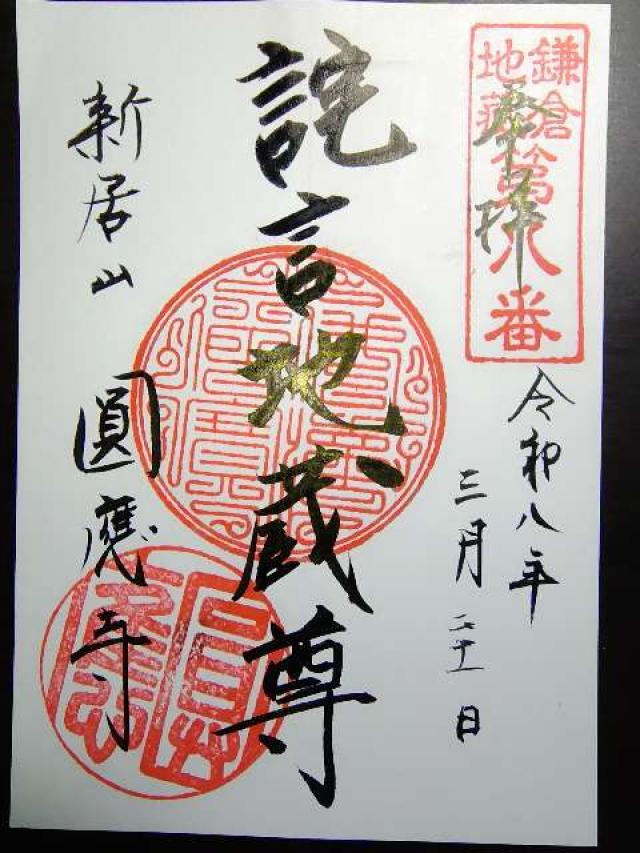 鎌倉
地蔵
第八番
奉拝
令和八年
三月二十一日
詫言地蔵尊
新居山
圓應寺